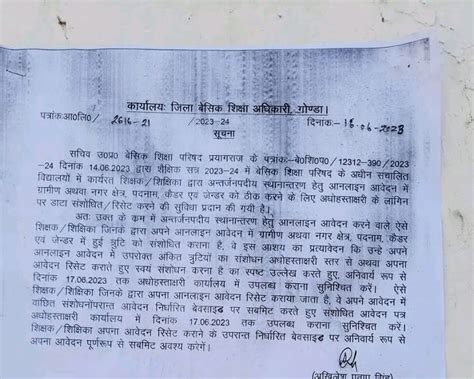 कार्यालयः जिला बेसिक शिक्षा अधिकारी, गोण्डा।
पत्रांक:आ0लि0/ 2616-21 /2023-24 दिनांकः- 16-06-2023
सूचना
सचिव उ0प्र0 बेसिक शिक्षा परिषद प्रयागराज के पत्रांकः-बे0शि0प0/12312-390/2023
-24 दिनांक 14.06.2023 द्वारा शैक्षिक सत्र 2023-24 में बेसिक शिक्षा परिषद के अधीन संचालित
विद्यालयों में कार्यरत शिक्षक/शिक्षिका द्वारा अन्तर्जनपदीय स्थानान्तरण हेतु आनलाइन आवेदन में
ग्रामीण अथवा नगर क्षेत्र, पदनाम, कैडर एवं जेन्डर को ठीक करने के लिए अधोहस्ताक्षरी के लॉगिन
पर डाटा संशोधित/रिसेट करने की सुविधा प्रदान की गयी है।
अतः उक्त के कम में अन्तर्जनपदीय स्थानान्तरण हेतु आनलाइन आवेदन करने वाले ऐसे
शिक्षक/शिक्षिका जिनके द्वारा अपने आनलाइन आवेदन में ग्रामीण अथवा नगर क्षेत्र, पदनाम, कैडर
एवं जेन्डर में हुई त्रुटि को संशोधित कराना है, वे इस आशय का प्रत्यावेदन कि उन्हे अपने
आनलाइन आवेदन में उपरोक्त अंकित त्रुटियों का संशोधन अधोहस्ताक्षरी स्तर से अथवा अपना
आवेदन रिसेट कराते हुए स्वयं संशोधन करना है का स्पष्ट उल्लेख करते हुए, अनिवार्य रूप से
दिनांक 17.06.2023 तक अधोहस्ताक्षरी कार्यालय में उपलब्ध कराना सुनिश्चित करें। ऐसे
शिक्षक/शिक्षिका जिनके द्वारा अपना आनलाइन आवेदन रिसेट कराया जाता है, वे अपने आवेदन में
वांछित संशोधनोपरान्त आवेदन निर्धारित बेवसाइड पर सबमिट करते हुए संशोधित आवेदन पत्र
अधोहस्ताक्षरी कार्यालय में दिनांक 17.06.2023 तक उपलब्ध कराना सुनिश्चित करें।
शिक्षक/शिक्षिका अपना आवेदन रिसेट कराने के उपरान्त निर्धारित बेवसाइड पर अनिवार्य रूप से
अपना आवेदन पूर्णरूप से सबमिट अवश्य करेगें।
(अखिलेश प्रताप सिंह)